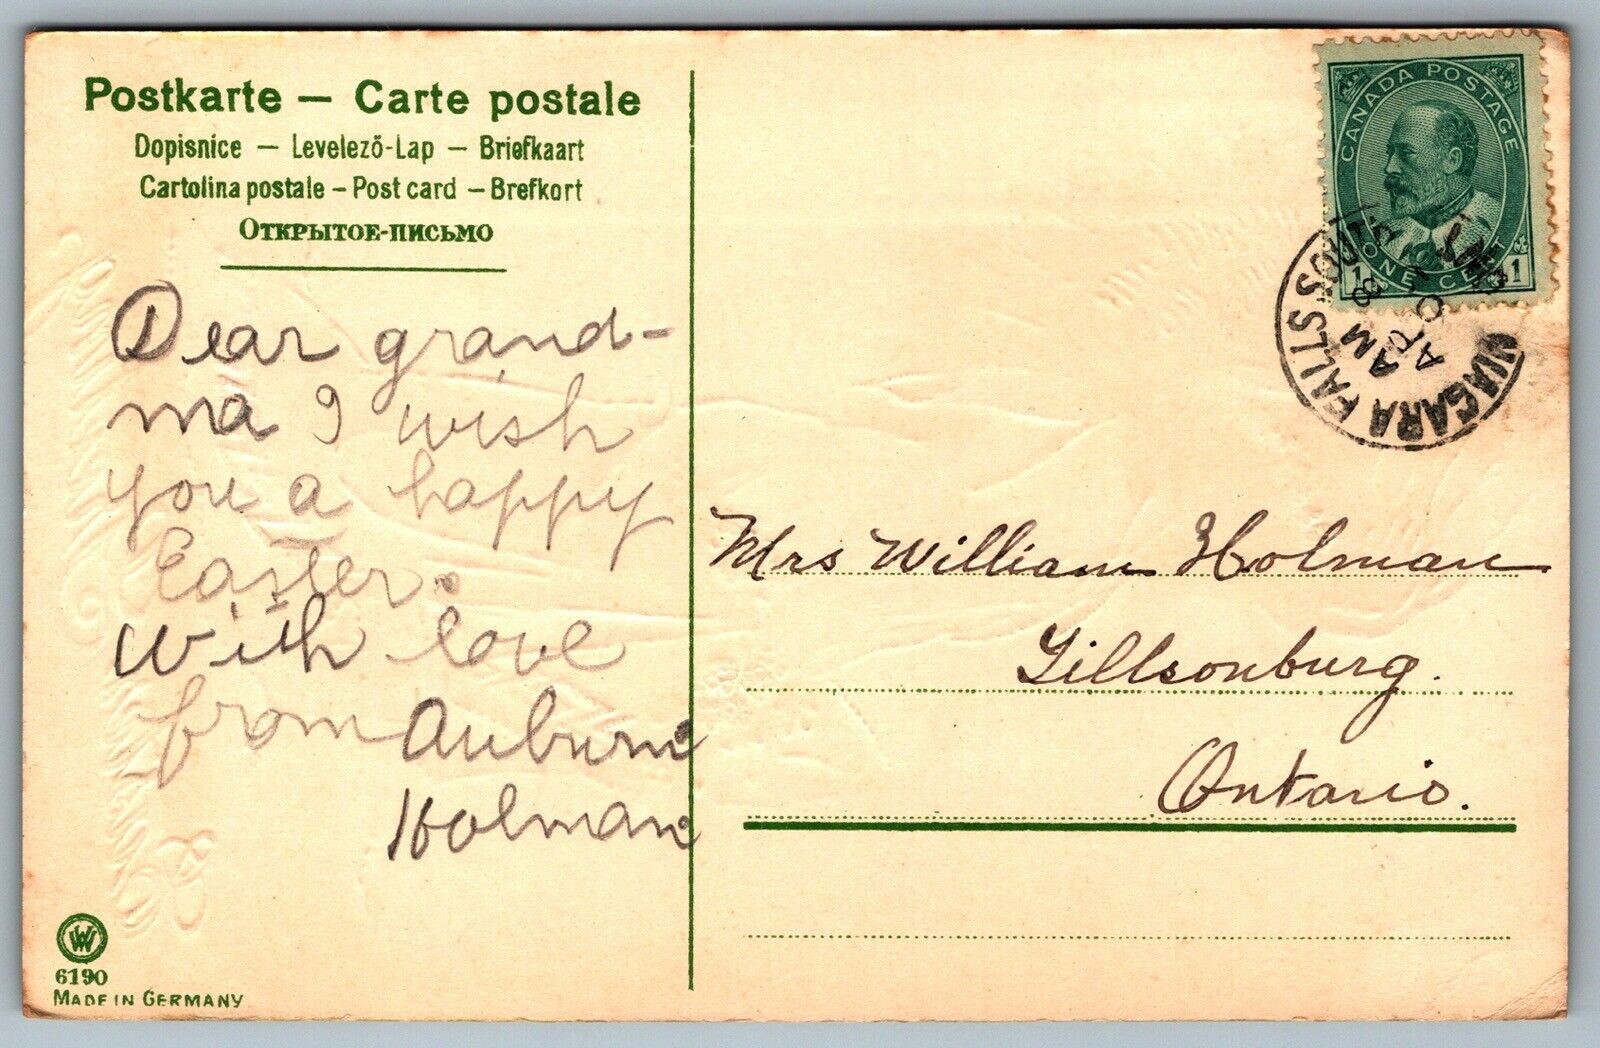 Postkarte — Carte postale
Dopisnice — Levelező-Lap — Briefkaart
Cartolina postale – Post card – Brefkort
Открытое-письмо
Dear grand-
ma I wish
you a happy
Easter.
With love
from Auburn
Holman
6190
MADE IN GERMANY
CANADA POSTAGE
1 ONE CENT 1
NIAGARA FALLS SOUTH
AM
AP
Mrs William Holman
Tillsonburg.
Ontario.